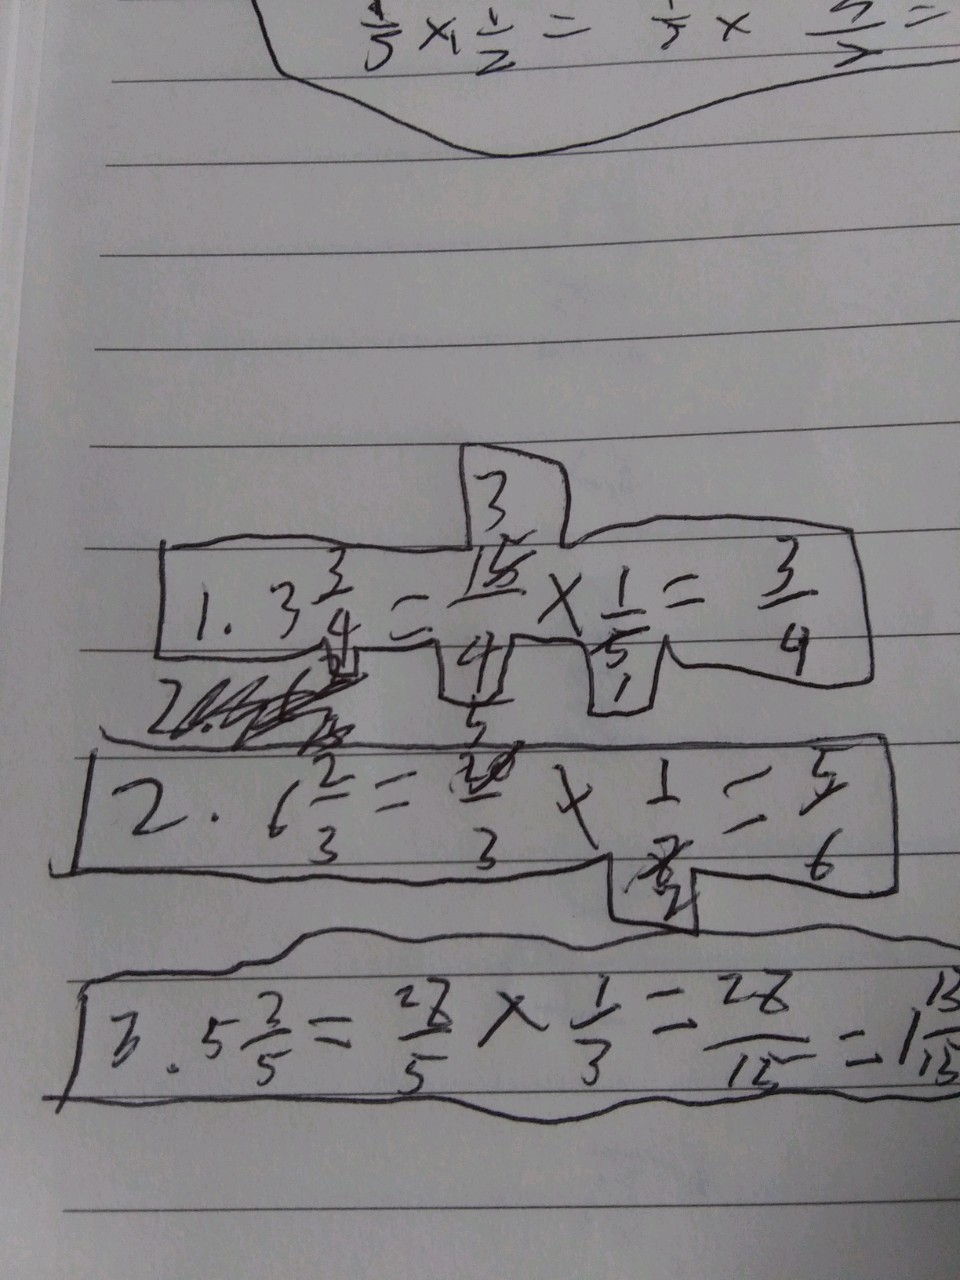 1/5 × 1 1/2 = 1/5 ×
3
1. 3 3/4 = 15/4 × 1/5 = 3/4
1
2.
5
2. 6 2/3 = 20/3 × 1/8 = 5/6
2
3. 5 3/5 = 28/5 × 1/3 = 28/15 = 1 13/15